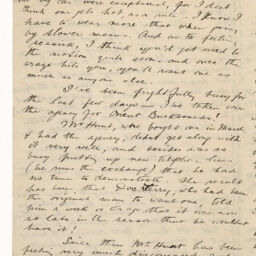 my car were exceptional, for I don't
think one gets that as a rule. I know I
have to wear more than when going
by slower means. And as to feeling
nervous, I think you'd get used to
the motion quite soon and once the
craze hits you, you'll want one as
much as anyone else.
I've been frightfully busy for
the last few days — I've taken over
the agency for Orient Buckboards!
Hunt, who bought one in March
& had the agency, didn't get along with
it very well, and besides was so
busy putting up new telephone lines
(he runs the exchange) that he had
no time to demonstrate. The result
has been that Doc Terry, who had been
the original man to want one, told
him a week or so ago that it was now
so late in the season that he wouldn't
have it!
Since then Mr Hunt has been
feeling very much discouraged and